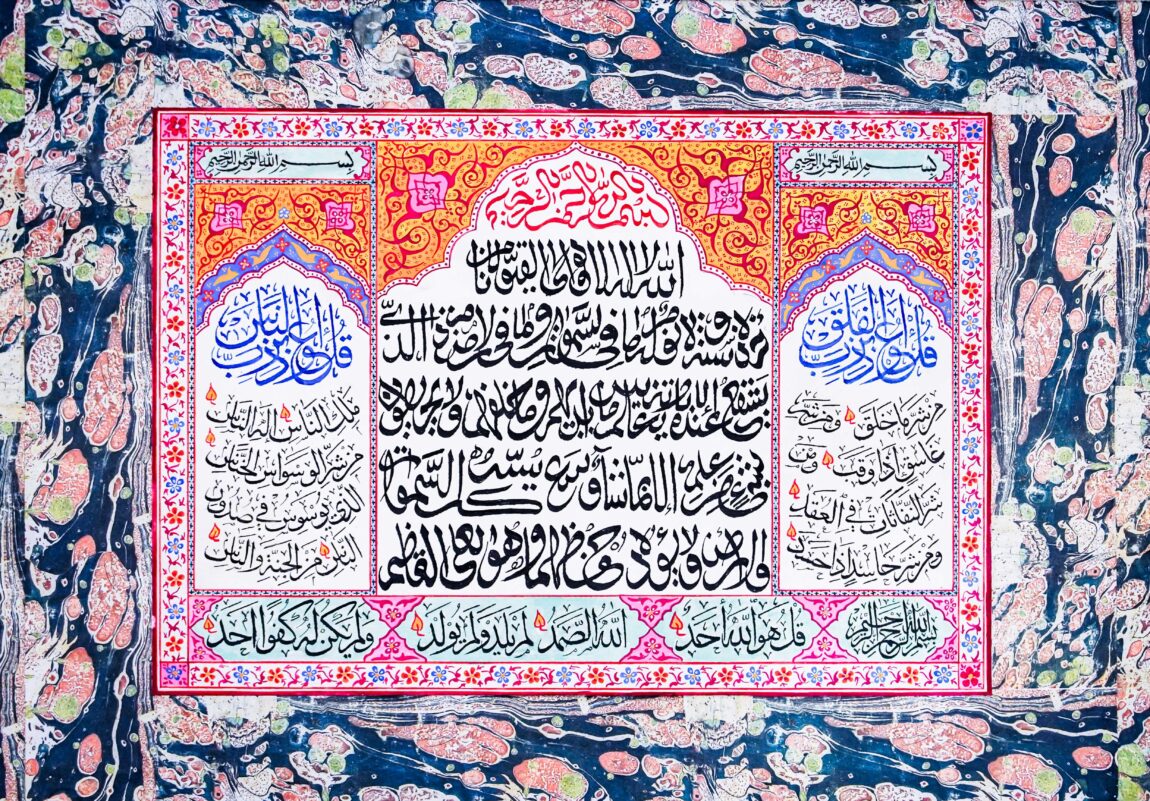 بسم الله الرحمن الرحيم
قل أعوذ برب الفلق
من شر ما خلق ومن شر
غاسق إذا وقب ومن
شر النفاثات في العقد
ومن شر حاسد إذا حسد
بسم الله الرحمن الرحيم
الله لا إله إلا هو الحي القيوم لا تأ
خذه سنة ولا نوم له ما في السموات وما في الأرض من ذا الذي
يشفع عنده إلا بإذنه يعلم ما بين أيديهم وما خلفهم ولا يحيطون
بشيء من علمه إلا بما شاء وسع كرسيه السموات
والأرض ولا يؤده حفظهما وهو العلي العظيم
بسم الله الرحمن الرحيم
قل أعوذ برب الناس
ملك الناس إله الناس
من شر الوسواس الخناس
الذي يوسوس في صدور
الناس من الجنة والناس
بسم الله الرحمن الرحيم
قل هو الله أحد
الله الصمد لم يلد ولم يولد
ولم يكن له كفوا أحد